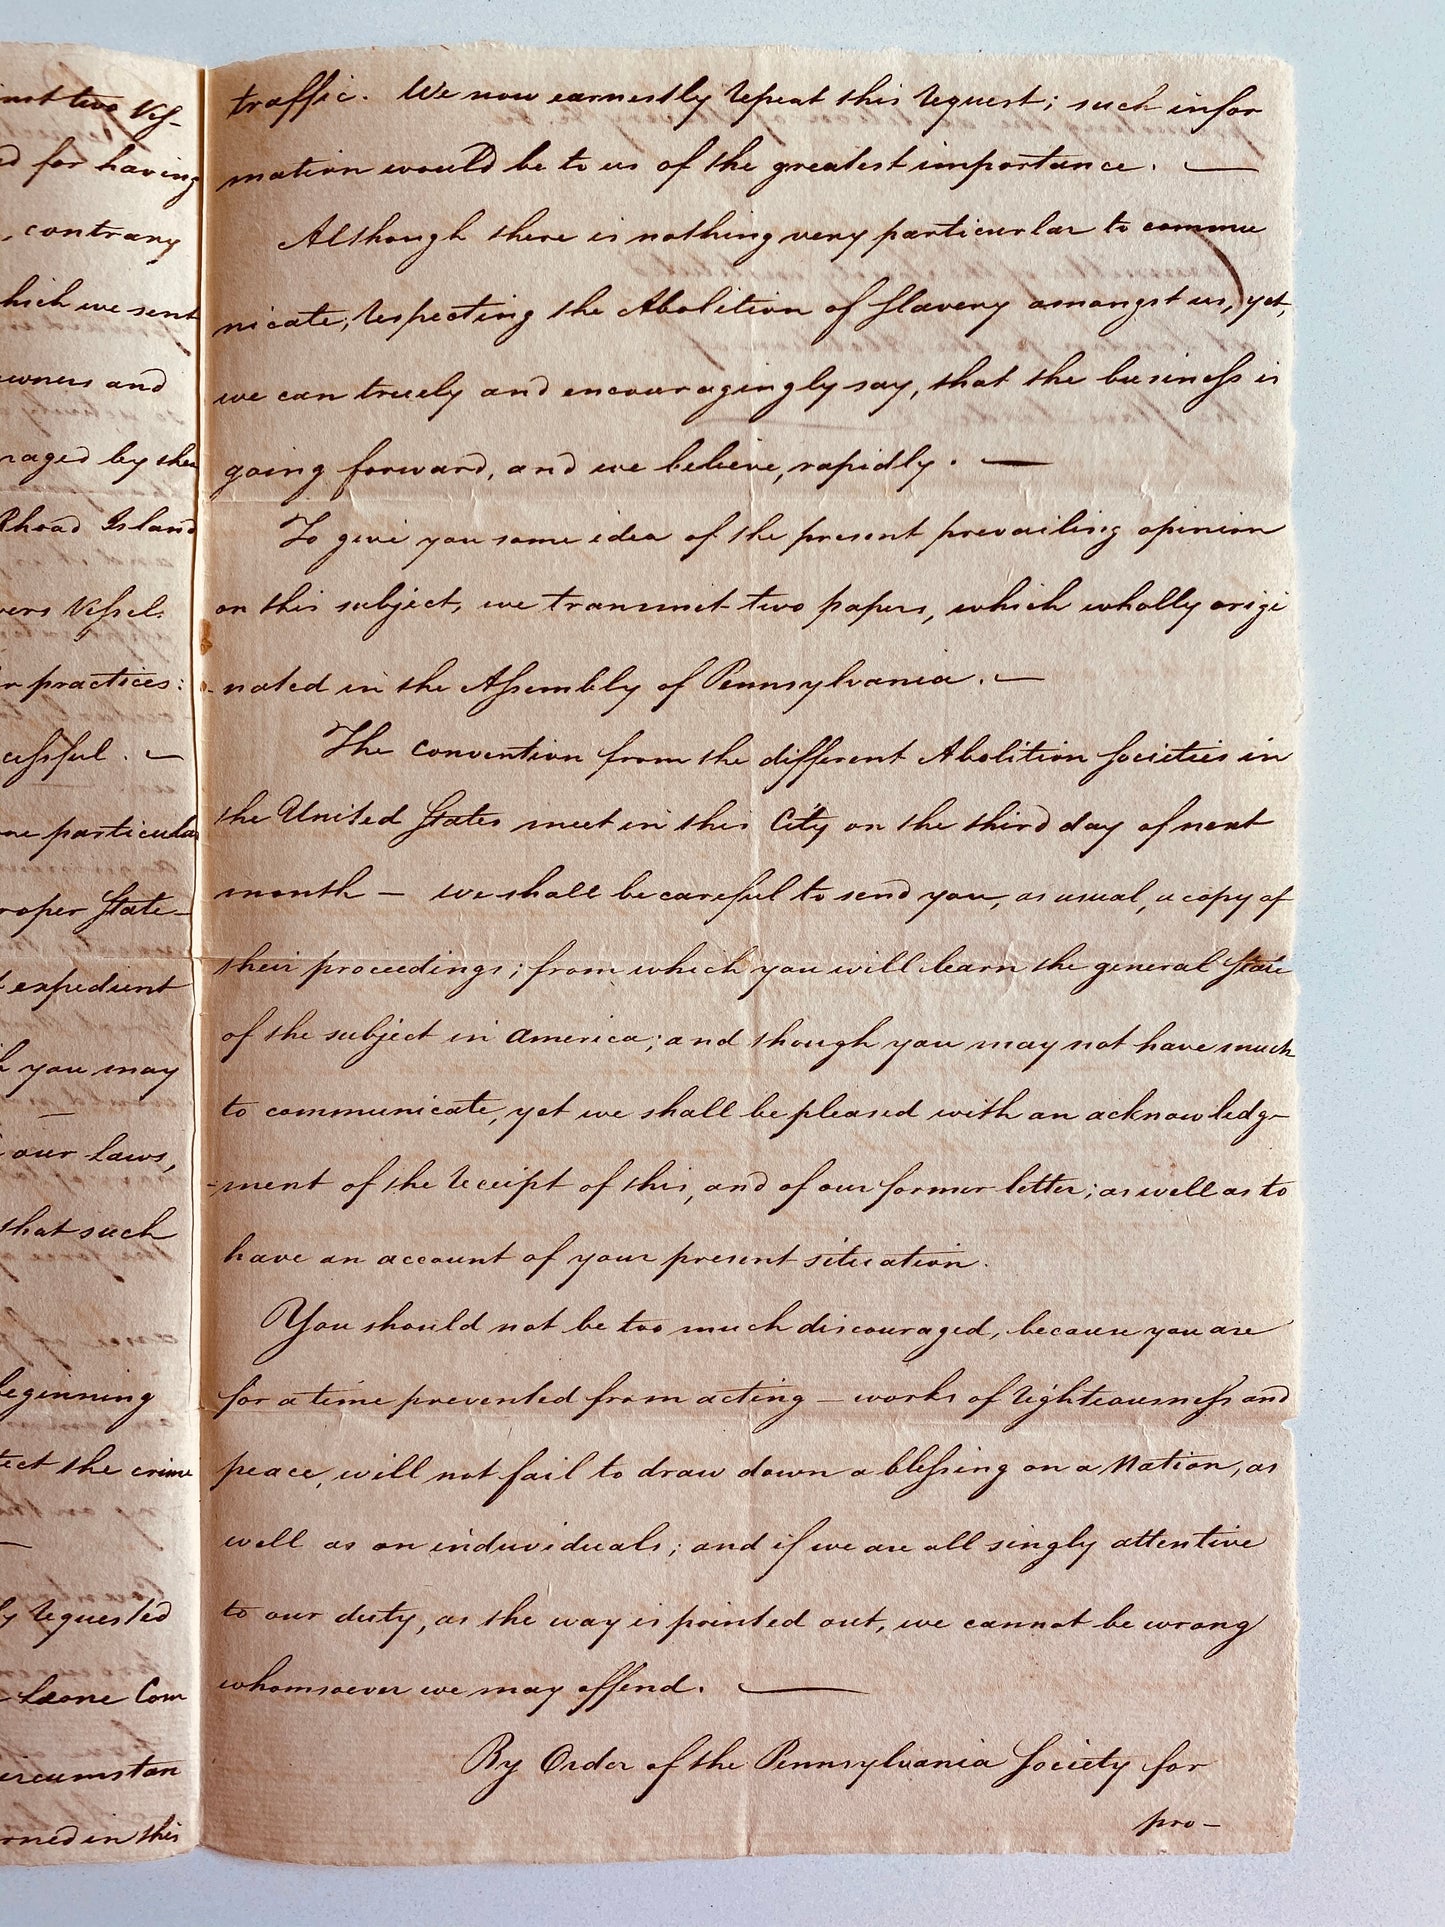 inst two Vess-
ed for having
, contrary
hich we sent
owners and
naged by thei
Rhoad Island
vers Vessel:
r practices:
cessful. —
me particular
roper State-
t expedient
h you may
—
our laws,
that such
beginning
tect the crime
—
ly requested
Leone Com
ircumstan
rned in this
traffic. We now earnestly repeat this request; such infor
mation would be to us of the greatest importance. —
Although there is nothing very particular to commu
nicate, respecting the Abolition of Slavery amongst us, yet,
we can truely and encouragingly say, that the business is
going forward, and we believe, rapidly. —
To give you some idea of the present prevailing opinion
on this subject, we transmit two papers, which wholly origi
-nated in the Assembly of Pennsylvania. —
The Convention from the different Abolition Societies in
the United States meet in this City on the third day of next
month — we shall be careful to send you, as usual, a copy of
their proceedings; from which you will learn the general State
of the subject in America; and though you may not have much
to communicate, yet we shall be pleased with an acknowledg-
-ment of the receipt of this, and of our former letter; as well as to
have an account of your present situation.
You should not be too much discouraged, because you are
for a time prevented from acting — works of righteousness and
peace, will not fail to draw down a blessing on a Nation, as
well as on induviduals; and if we are all singly attentive
to our duty, as the way is pointed out, we cannot be wrong
whomsoever we may offend. —
By Order of the Pennsylvania Society for
pro-